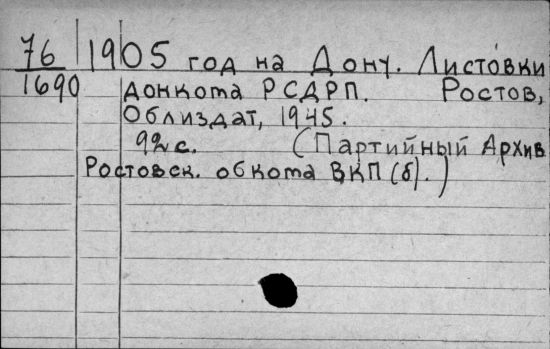 76 1905 год на Дону. Листовки
1690 Донкота РСДРП. Ростов,
Облиздат, 1945.
92 с. (Партийный Архив
Ростовск. обкота ВКП(б).)